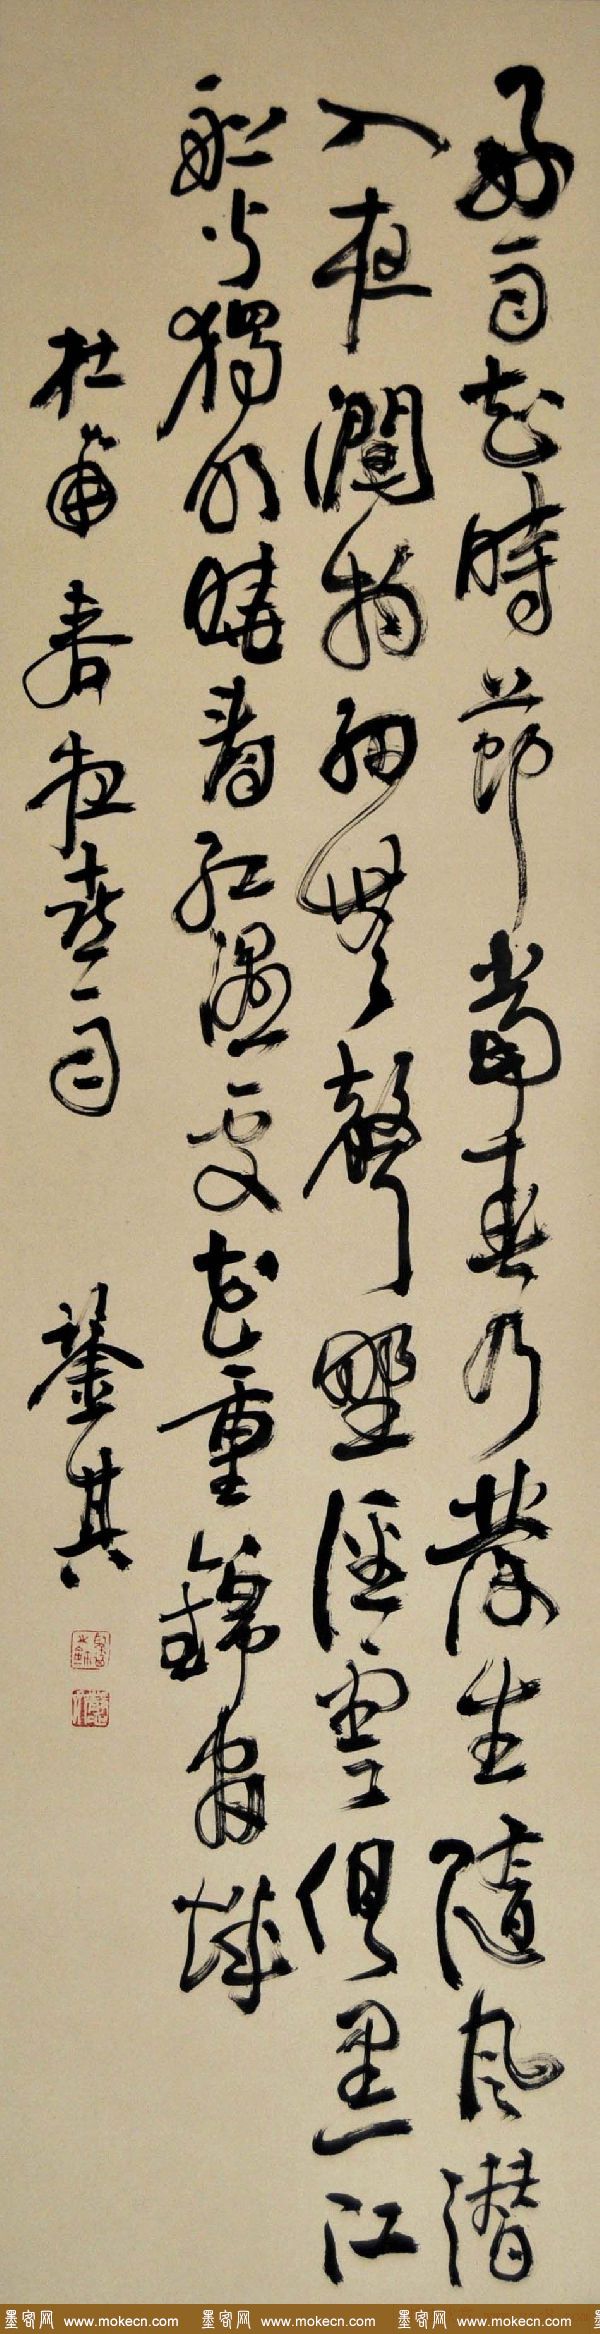 好雨知時節當春乃發生隨風潛
入夜潤物細無聲野徑雲俱黑江
船火獨明曉看紅濕處花重錦官城
杜甫春夜喜雨 其
墨客网 www.mokecn.com 墨客网 www.mokecn.com 墨客网 www.mokecn.com 墨